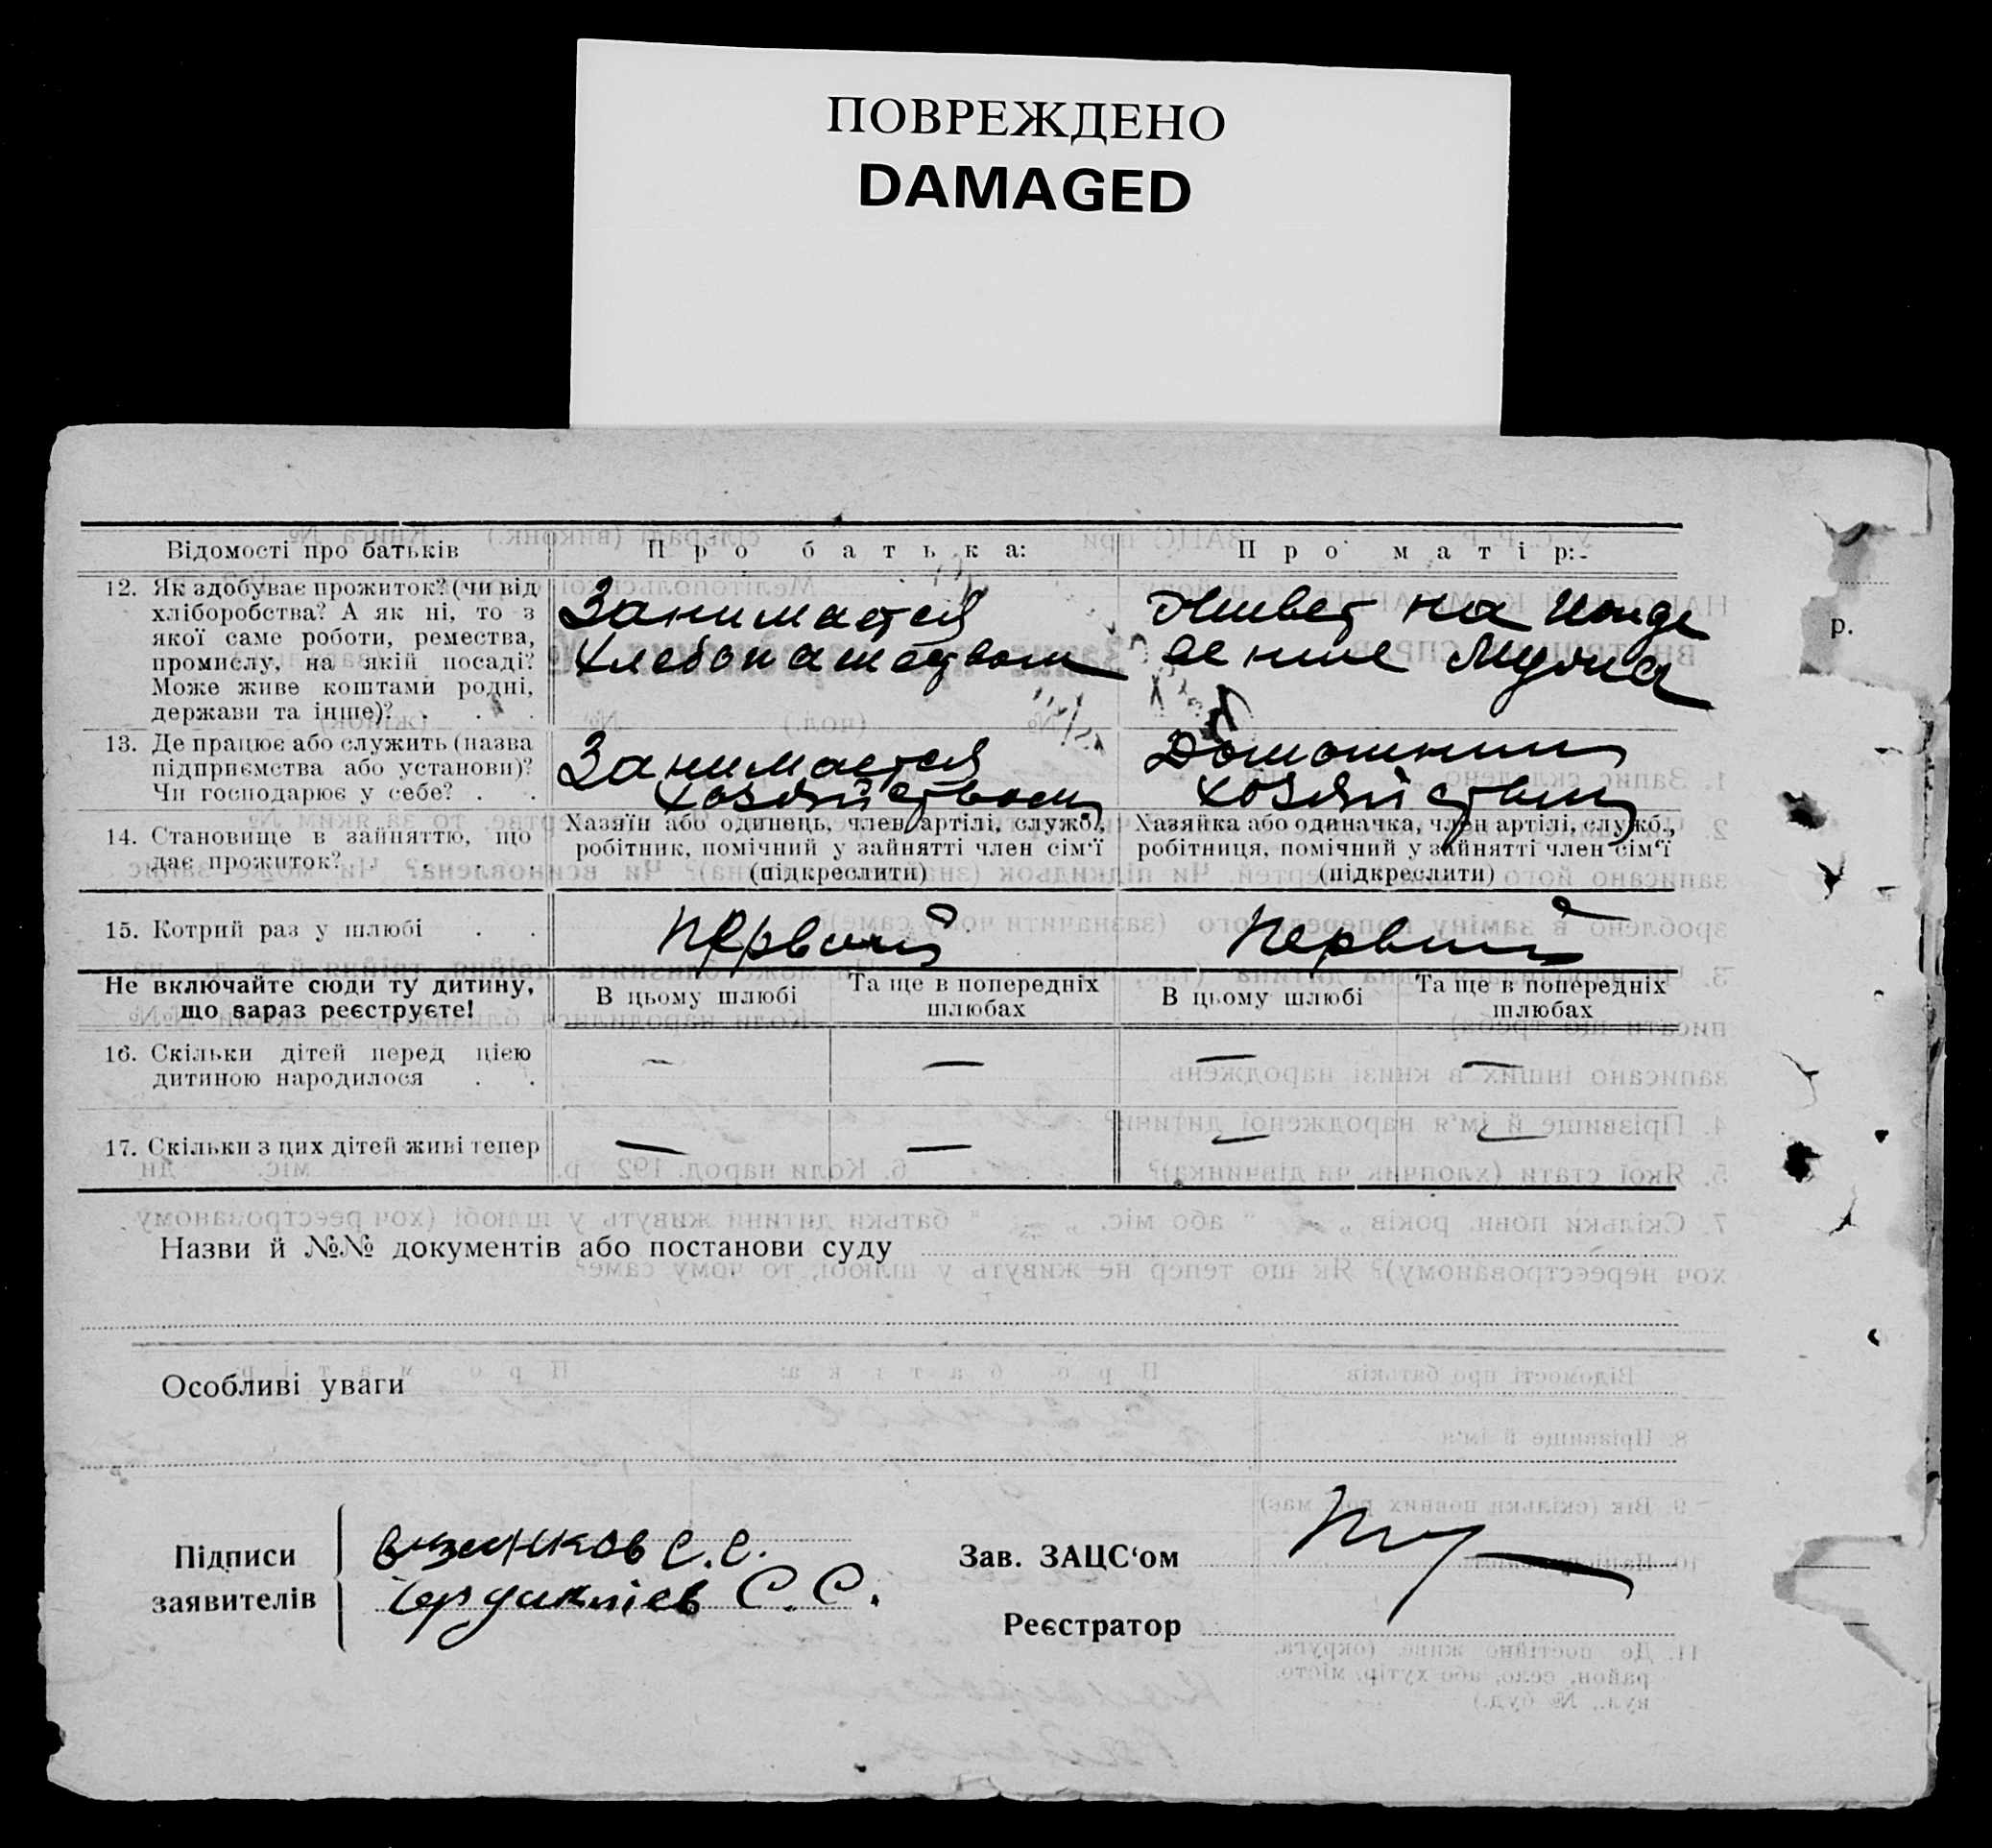 ПОВРЕЖДЕНО
DAMAGED
Відомості про батьків
Про батька:
Про матір:
12. Як здобуває прожиток? (чи від
хліборобства? А як ні, то з
якої саме роботи, ремества,
промислу, на якій посаді?
Може живе коштами родні,
держави та інше)? . . .
Занимается
хлебопашеством
Живет на ижде
вение мужа
13. Де працює або служить (назва
підприємства або установи)?
Чи господарює у себе? . .
Занимается
хозяйством
Домошним
хозяйством
14. Становище в зайняттю, що
дає прожиток? . . . .
Хазяїн або одинець, член артілі, служб.,
робітник, помічний у зайнятті член сім'ї
(підкреслити)
Хазяйка або одиначка, член артілі, служб.,
робітниця, помічний у зайнятті член сім'ї
(підкреслити)
15. Котрий раз у шлюбі . .
Первый
Первый
Не включайте сюди ту дитину,
що зараз реєструєте!
В цьому шлюбі
Та ще в попередніх
шлюбах
В цьому шлюбі
Та ще в попередніх
шлюбах
16. Скільки дітей перед цією
дитиною народилося . .
— — — —
17. Скільки з цих дітей живі тепер
— — — —
Назви й №№ документів або постанови суду
Особливі уваги
Підписи
заявителів
С.С.
С.С.
Зав. ЗАЦС'ом
Реєстратор
р.